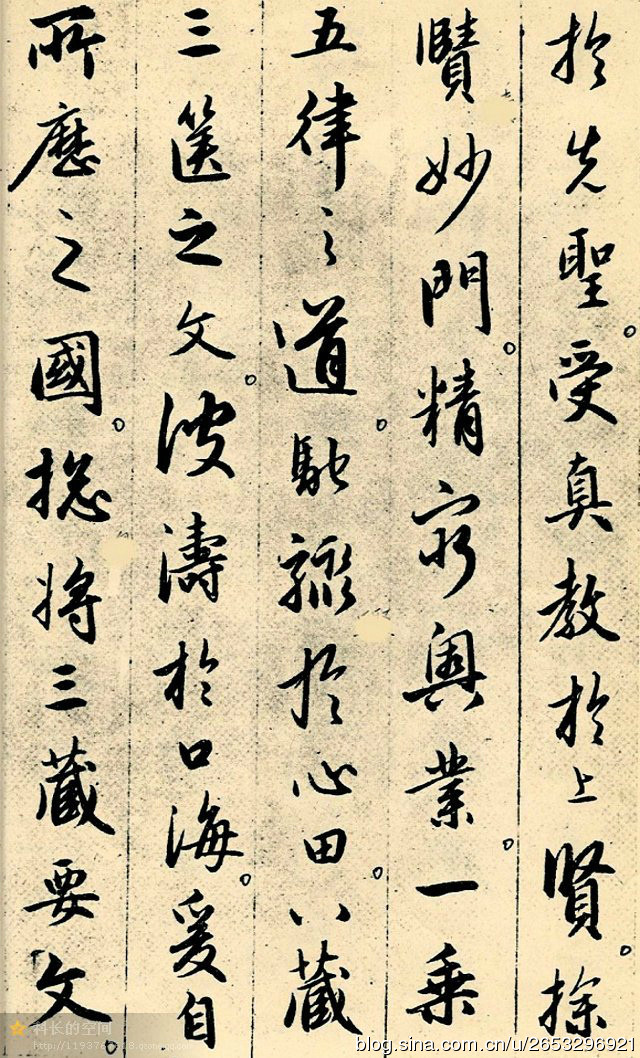 於先聖。受真教於上賢。探
賾妙門。精窮奧業。一乘
五律之道。馳驟於心田。八藏
三篋之文。波濤於口海。爰自
所歷之國。捴將三藏要文。
科长的空间
blog.sina.com.cn/u/2653296921